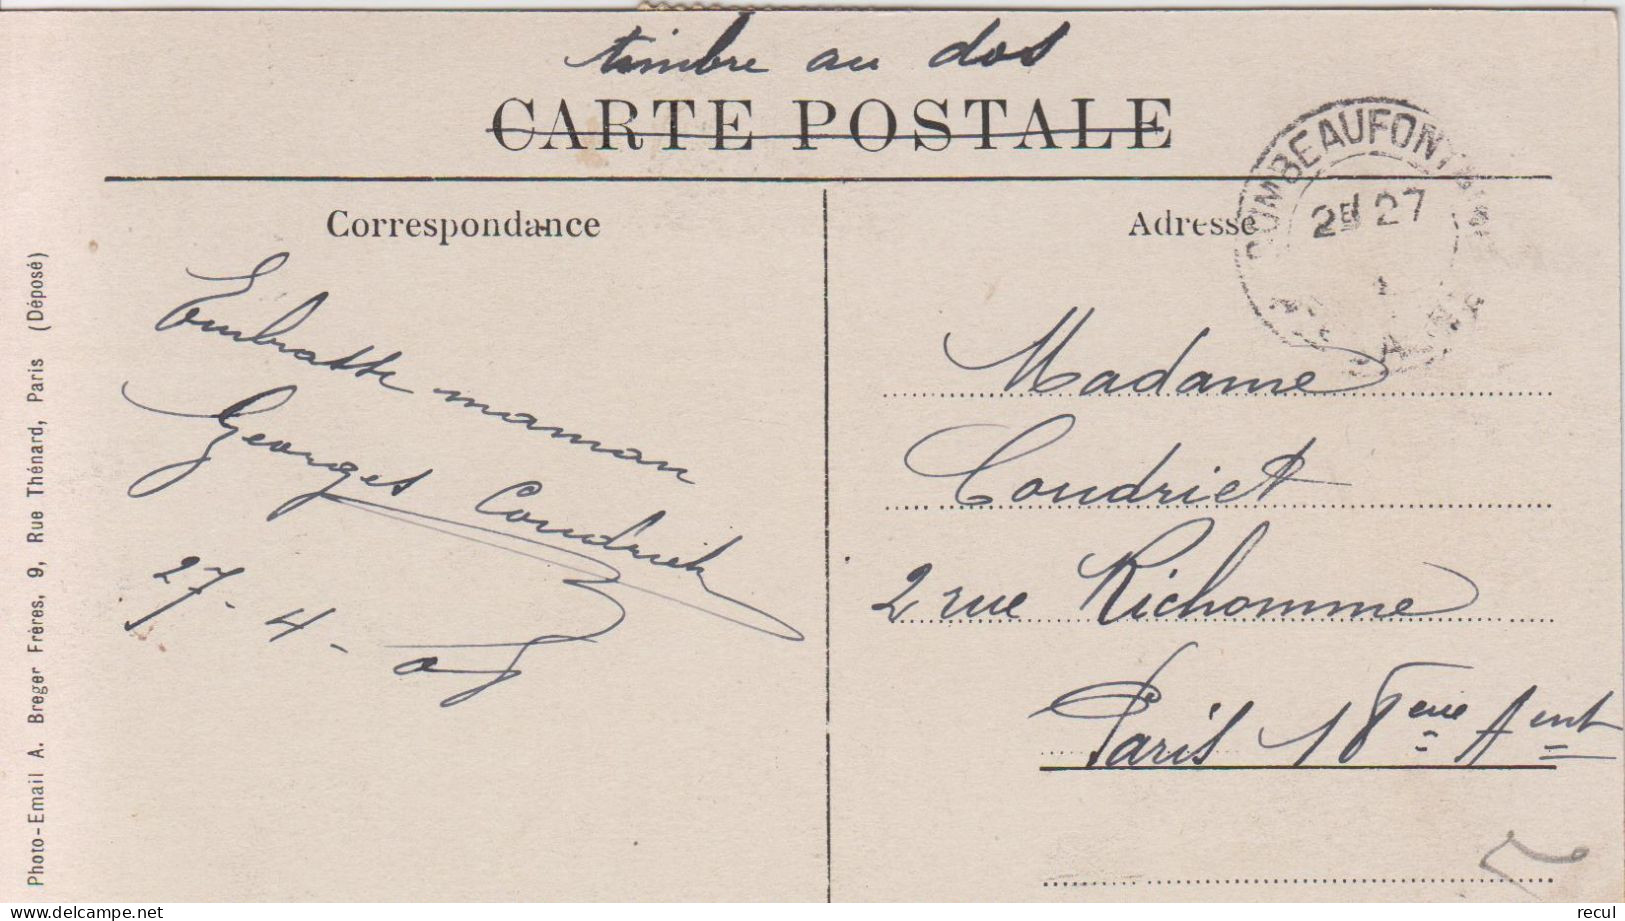 timbre au dos
CARTE POSTALE
Correspondance
Embrasse maman
Georges Coudriet
27-4-08
Adresse
Madame
Coudriet
2 rue Richomme
Paris 18eme Arrt
COMBEAUFONTAINE
2E/ 27
Photo-Email A. Breger Frères, 9, Rue Thénard, Paris (Déposé)
delcampe.net
recul